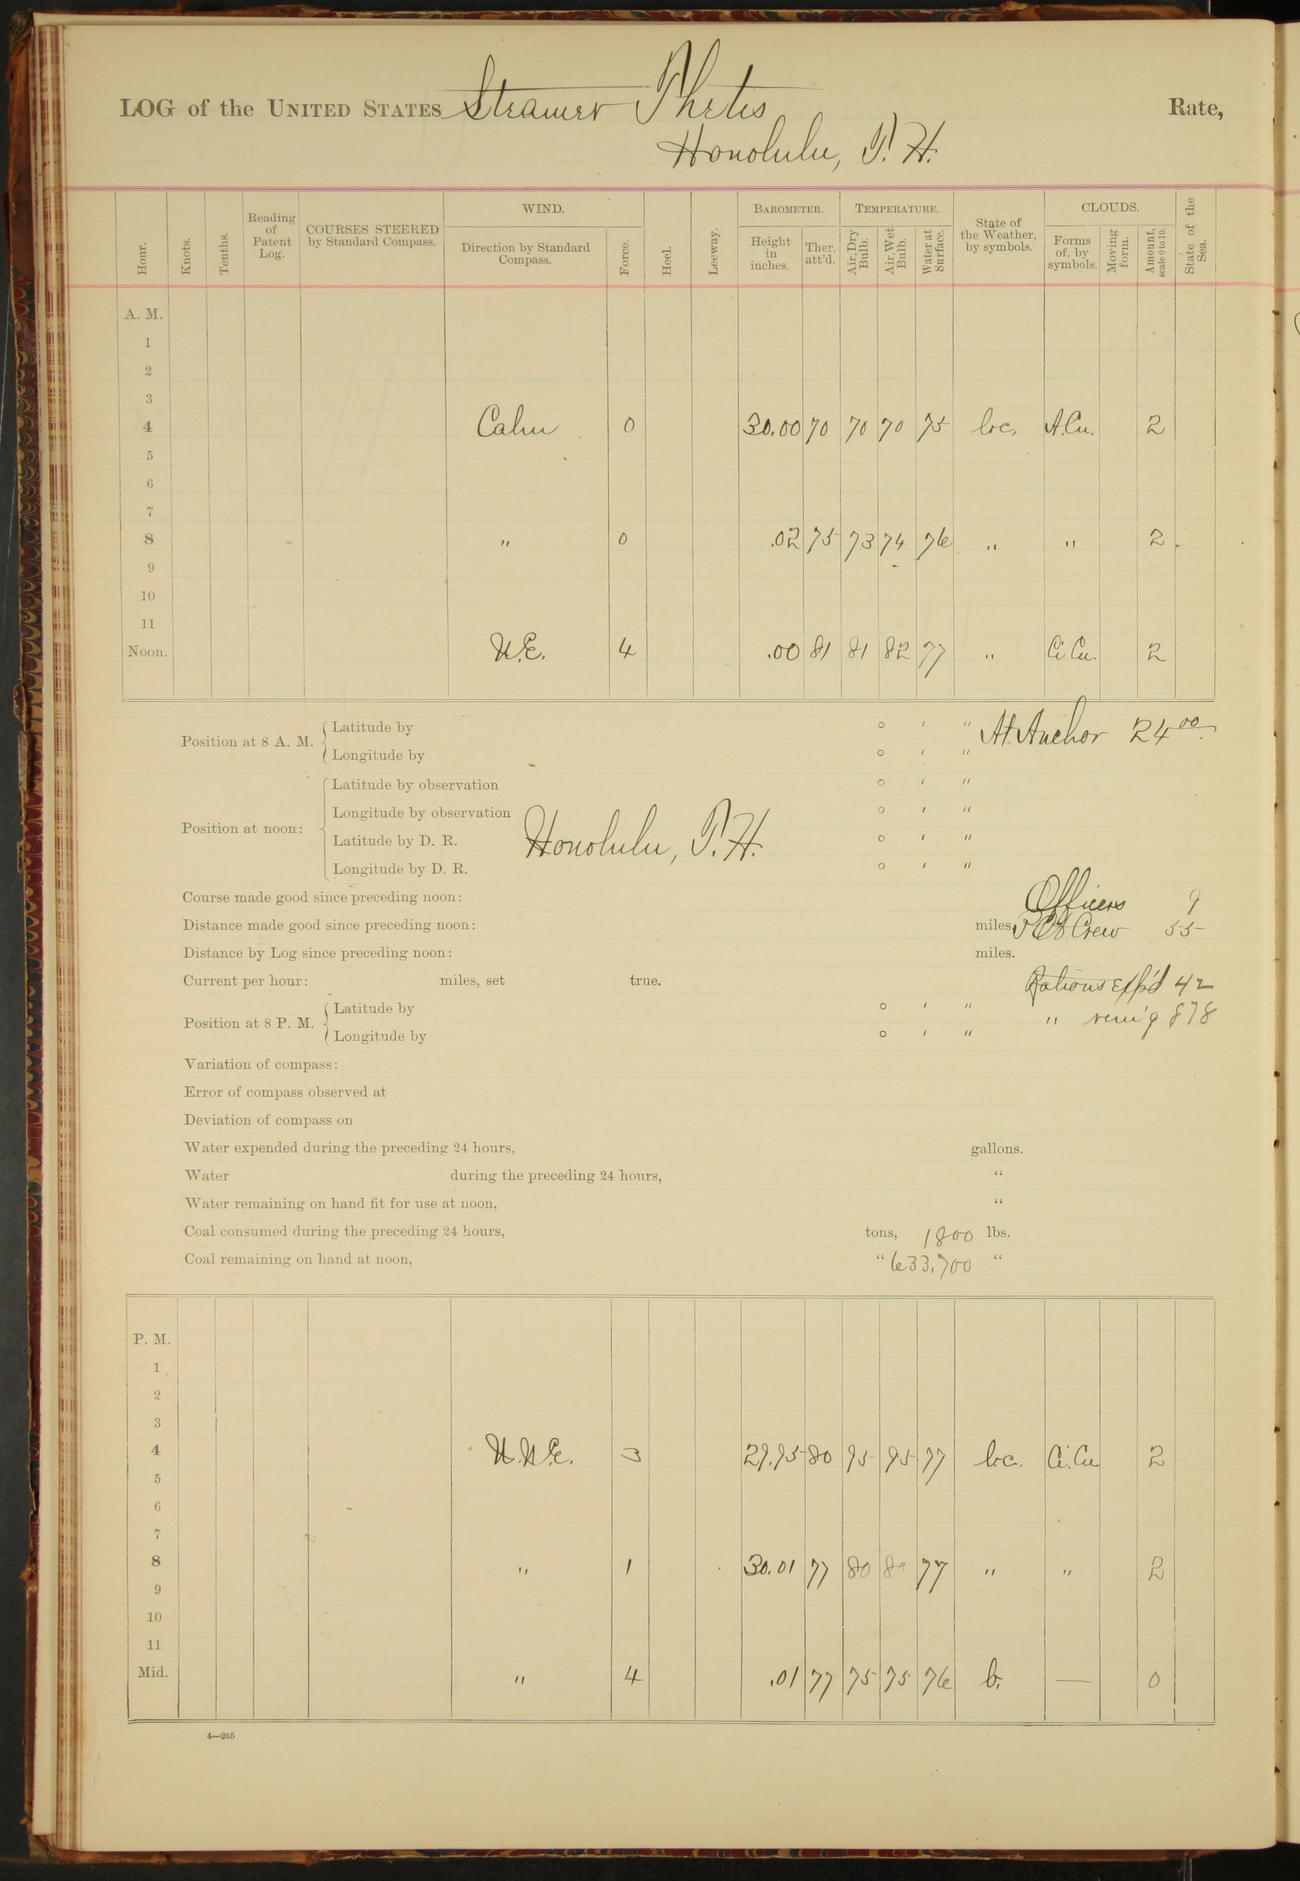 LOG of the UNITED STATES Steamer Thetis Rate,
Honolulu, T. H.
Hour.
Knots.
Tenths.
Reading of Patent Log.
COURSES STEERED by Standard Compass.
WIND.
Direction by Standard Compass.
Force.
Heel.
Leeway.
BAROMETER.
Height in inches.
Ther. att'd.
TEMPERATURE.
Air, Dry Bulb.
Air, Wet Bulb.
Water at Surface.
State of the Weather, by symbols.
CLOUDS.
Forms of, by symbols.
Moving form.
Amount, scale 0 to 10.
State of the Sea.
A. M.
1
2
3
4 Calm 0 30.00 70 70 70 75 b.c. A.Cu. 2
5
6
7
8 " 0 .02 75 73 74 76 " " 2
9
10
11
Noon. N.E. 4 .00 81 81 82 77 " Ci Cu. 2
Position at 8 A. M. Latitude by ° ′ ″ At Anchor 24 00
Longitude by ° ′ ″
Position at noon: Latitude by observation ° ′ ″
Longitude by observation ° ′ ″
Latitude by D. R. Honolulu, T. H. ° ′ ″
Longitude by D. R. ° ′ ″
Course made good since preceding noon: Officers 9
Distance made good since preceding noon: miles. Crew 55
Distance by Log since preceding noon: miles.
Current per hour: miles, set true. Rations exp'd 42
Position at 8 P. M. Latitude by ° ′ ″ " rem'g 878
Longitude by ° ′ ″
Variation of compass:
Error of compass observed at
Deviation of compass on
Water expended during the preceding 24 hours, gallons.
Water during the preceding 24 hours, "
Water remaining on hand fit for use at noon, "
Coal consumed during the preceding 24 hours, tons, 1800 lbs.
Coal remaining on hand at noon, " 633,700 "
P. M.
1
2
3
4 N.N.E. 3 29.95 80 95 95 77 b.c. Ci.Cu 2
5
6
7
8 " 1 30.01 77 80 80 77 " " 2
9
10
11
Mid. " 4 .01 77 75 75 76 b. — 0
4—265